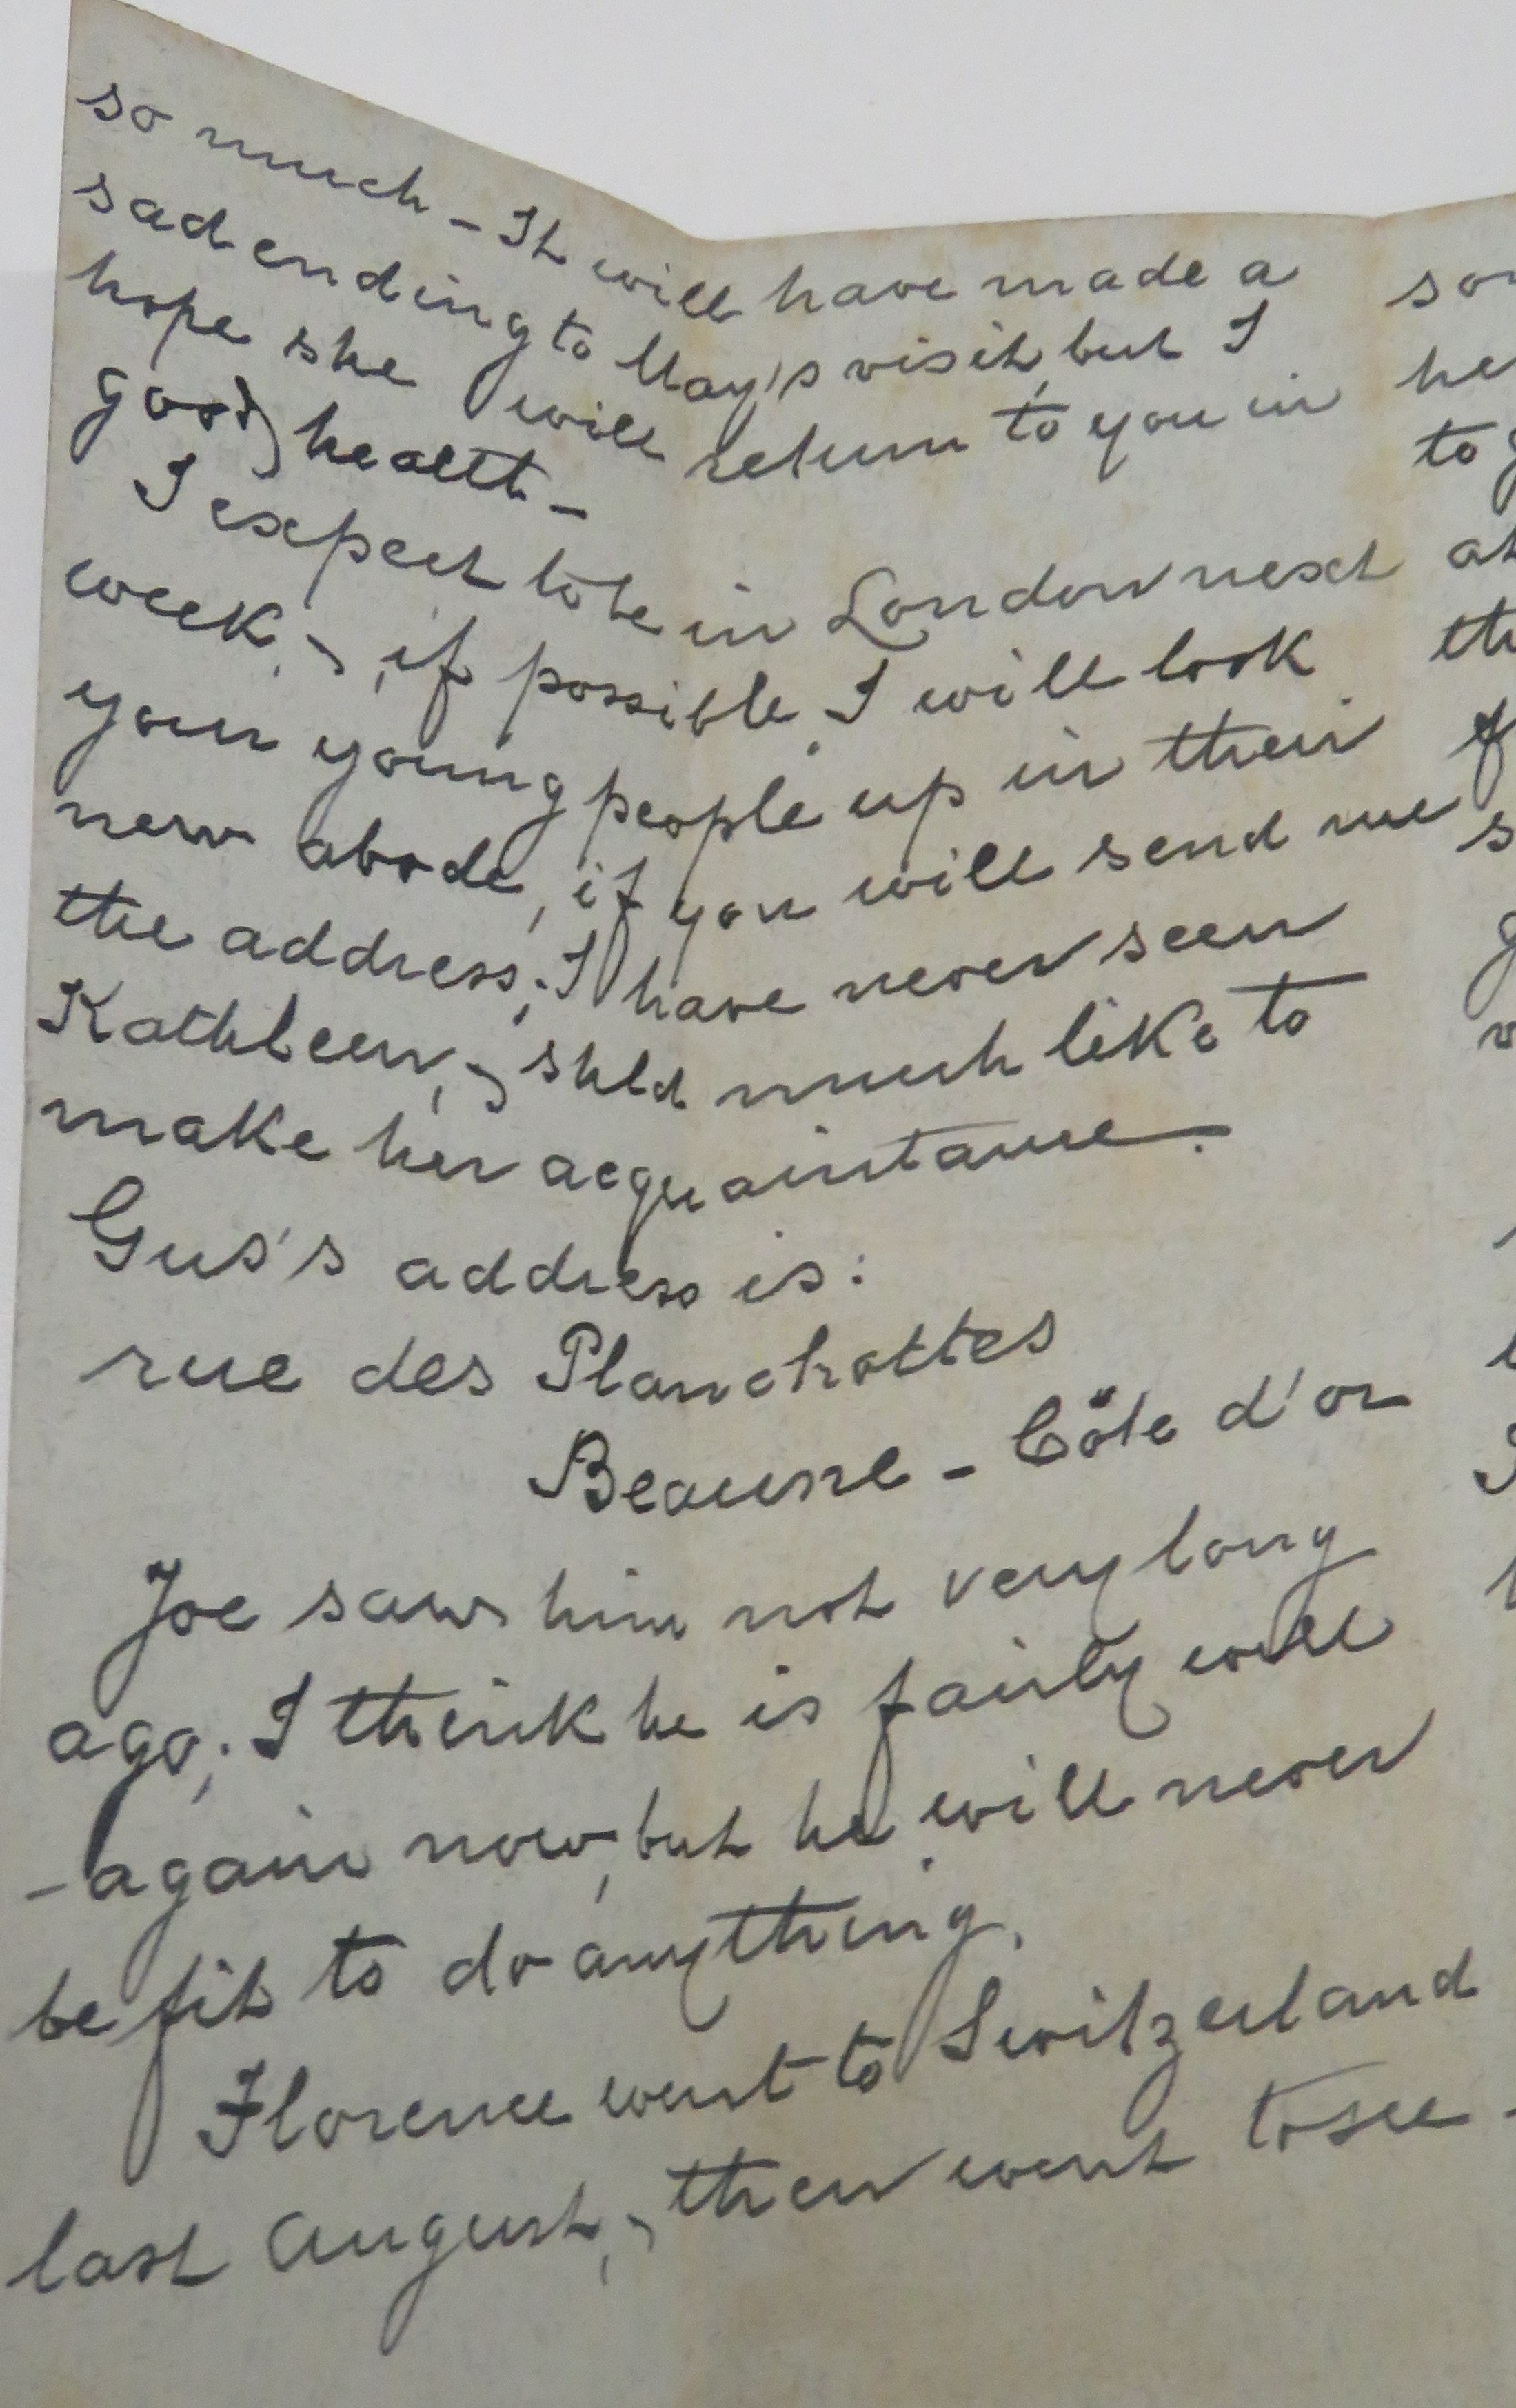 so much - It will have made a
sad ending to May's visit, but I
hope she will return to you in
good health -
I expect to be in London next
week, if possible I will look
your young people up in their
new abode, if you will send me
the address; I have never seen
Kathleen, shld much like to
make her acquaintance.
Gus's address is:
rue des Planchottes
Beaune - Côte d'or
Joe saw him not very long
ago; I think he is fairly well
- again now, but he will never
be fit to do anything.
Florence went to Switzerland
last August, then went to see -
he
to
s